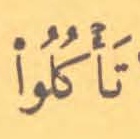 تَأْكُلُوا۟